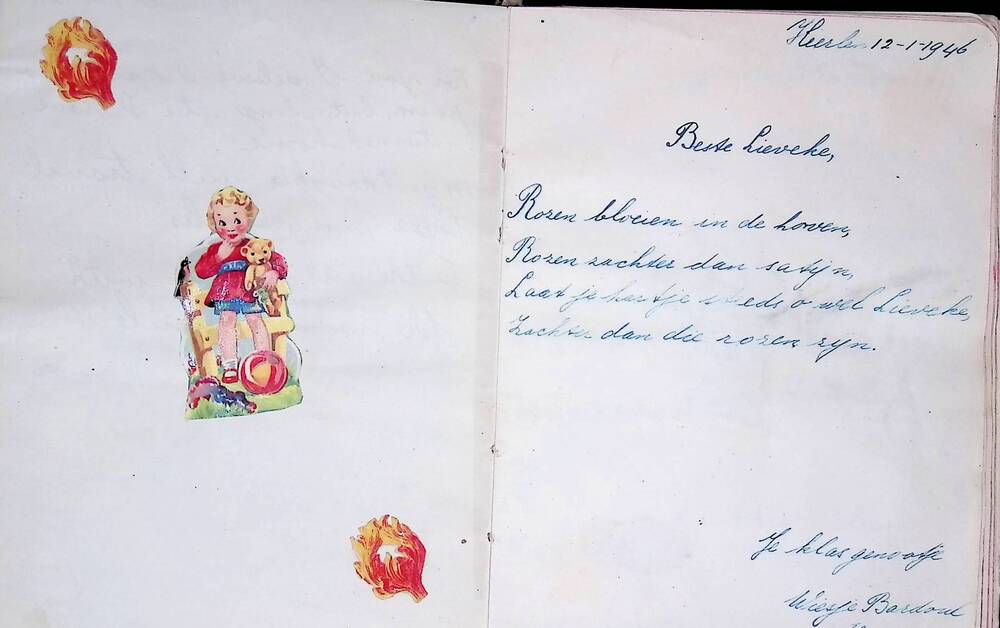 Heerlen 12-1-1946
Beste Lieveke,
Rozen bloeien in de hoven,
Rozen zachter dan satijn,
Laat je hartje steeds o wel Lieveke,
Zachter dan die rozen zyn.
Je klasgenootje
Wiesje Bardoul